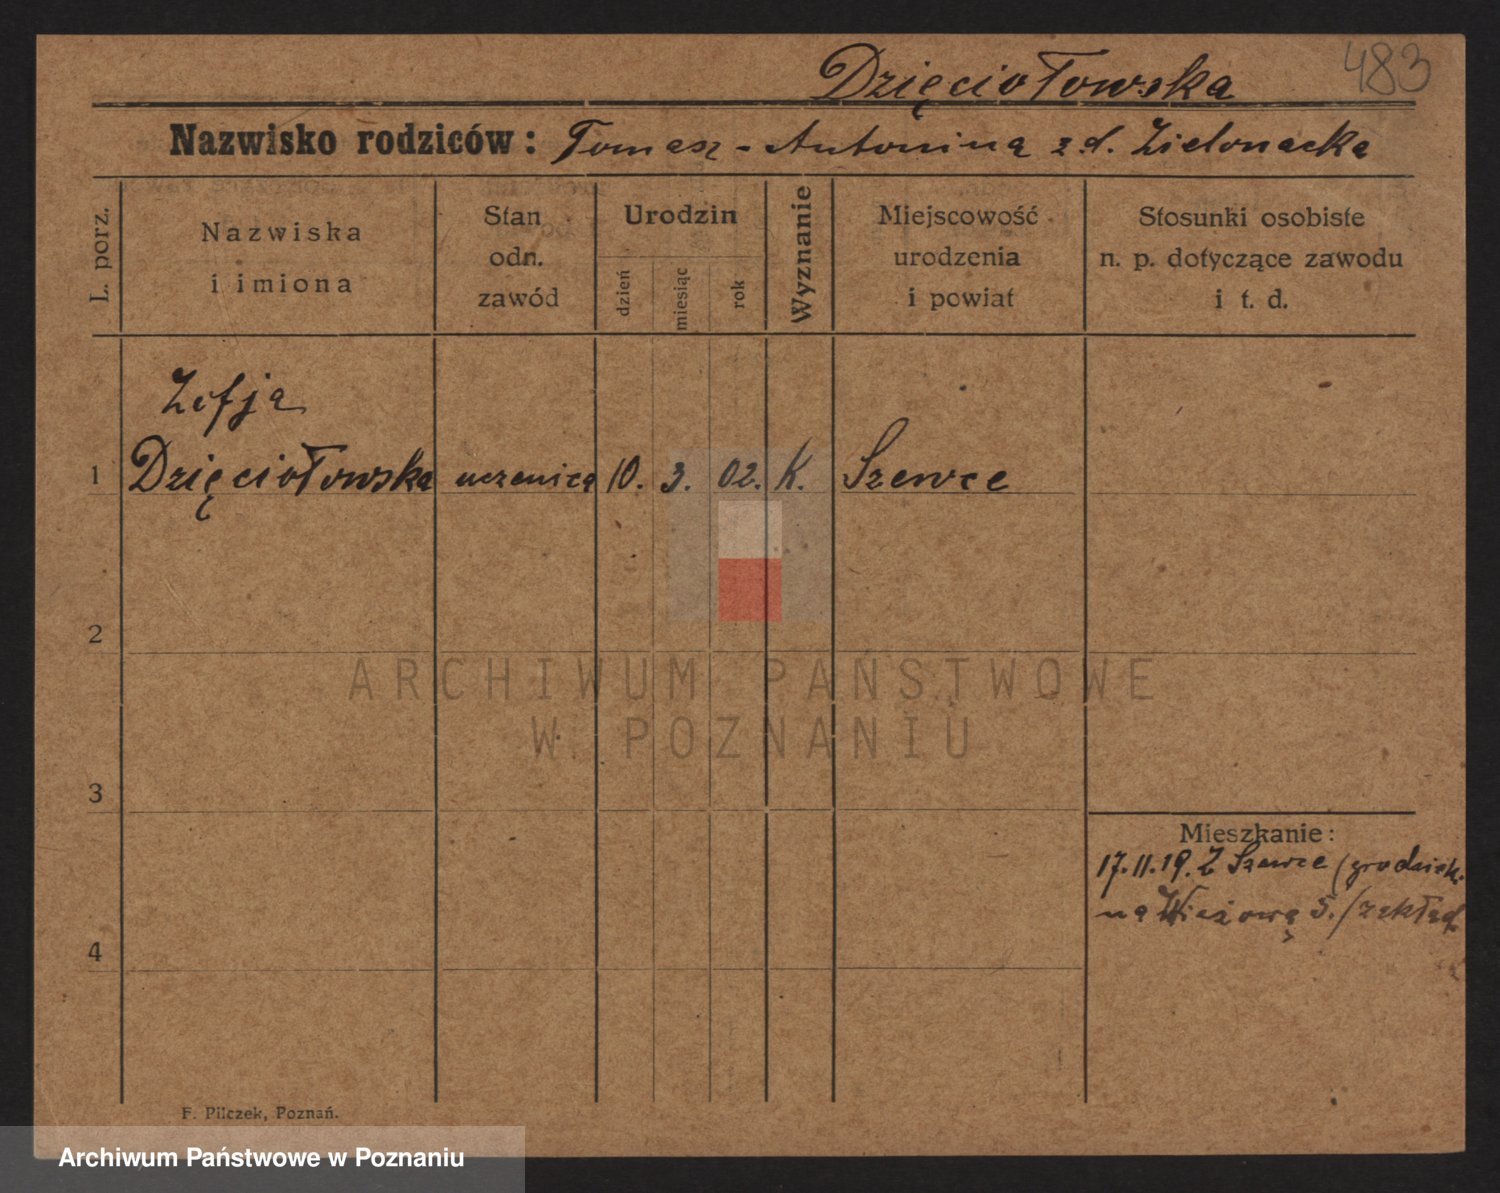 Dzięciołowska 483
Nazwisko rodziców: Tomasz - Antonina z d. Zielonacka
L. porz.
Nazwiska
i imiona
Stan
odn.
zawód
Urodzin
dzień
miesiąc
rok
Wyznanie
Miejscowość
urodzenia
i powiat
Stosunki osobiste
n. p. dotyczące zawodu
i t. d.
Zofja
1 Dzięciołowska uczenica 10. 3. 02. K. Szewce
2
ARCHIWUM PAŃSTWOWE
W POZNANIU
3
Mieszkanie:
17.11.19. Z Szewce (grodzisk.
na Wieżową 5. / zakład.
4
F. Pilczek, Poznań.
Archiwum Państwowe w Poznaniu